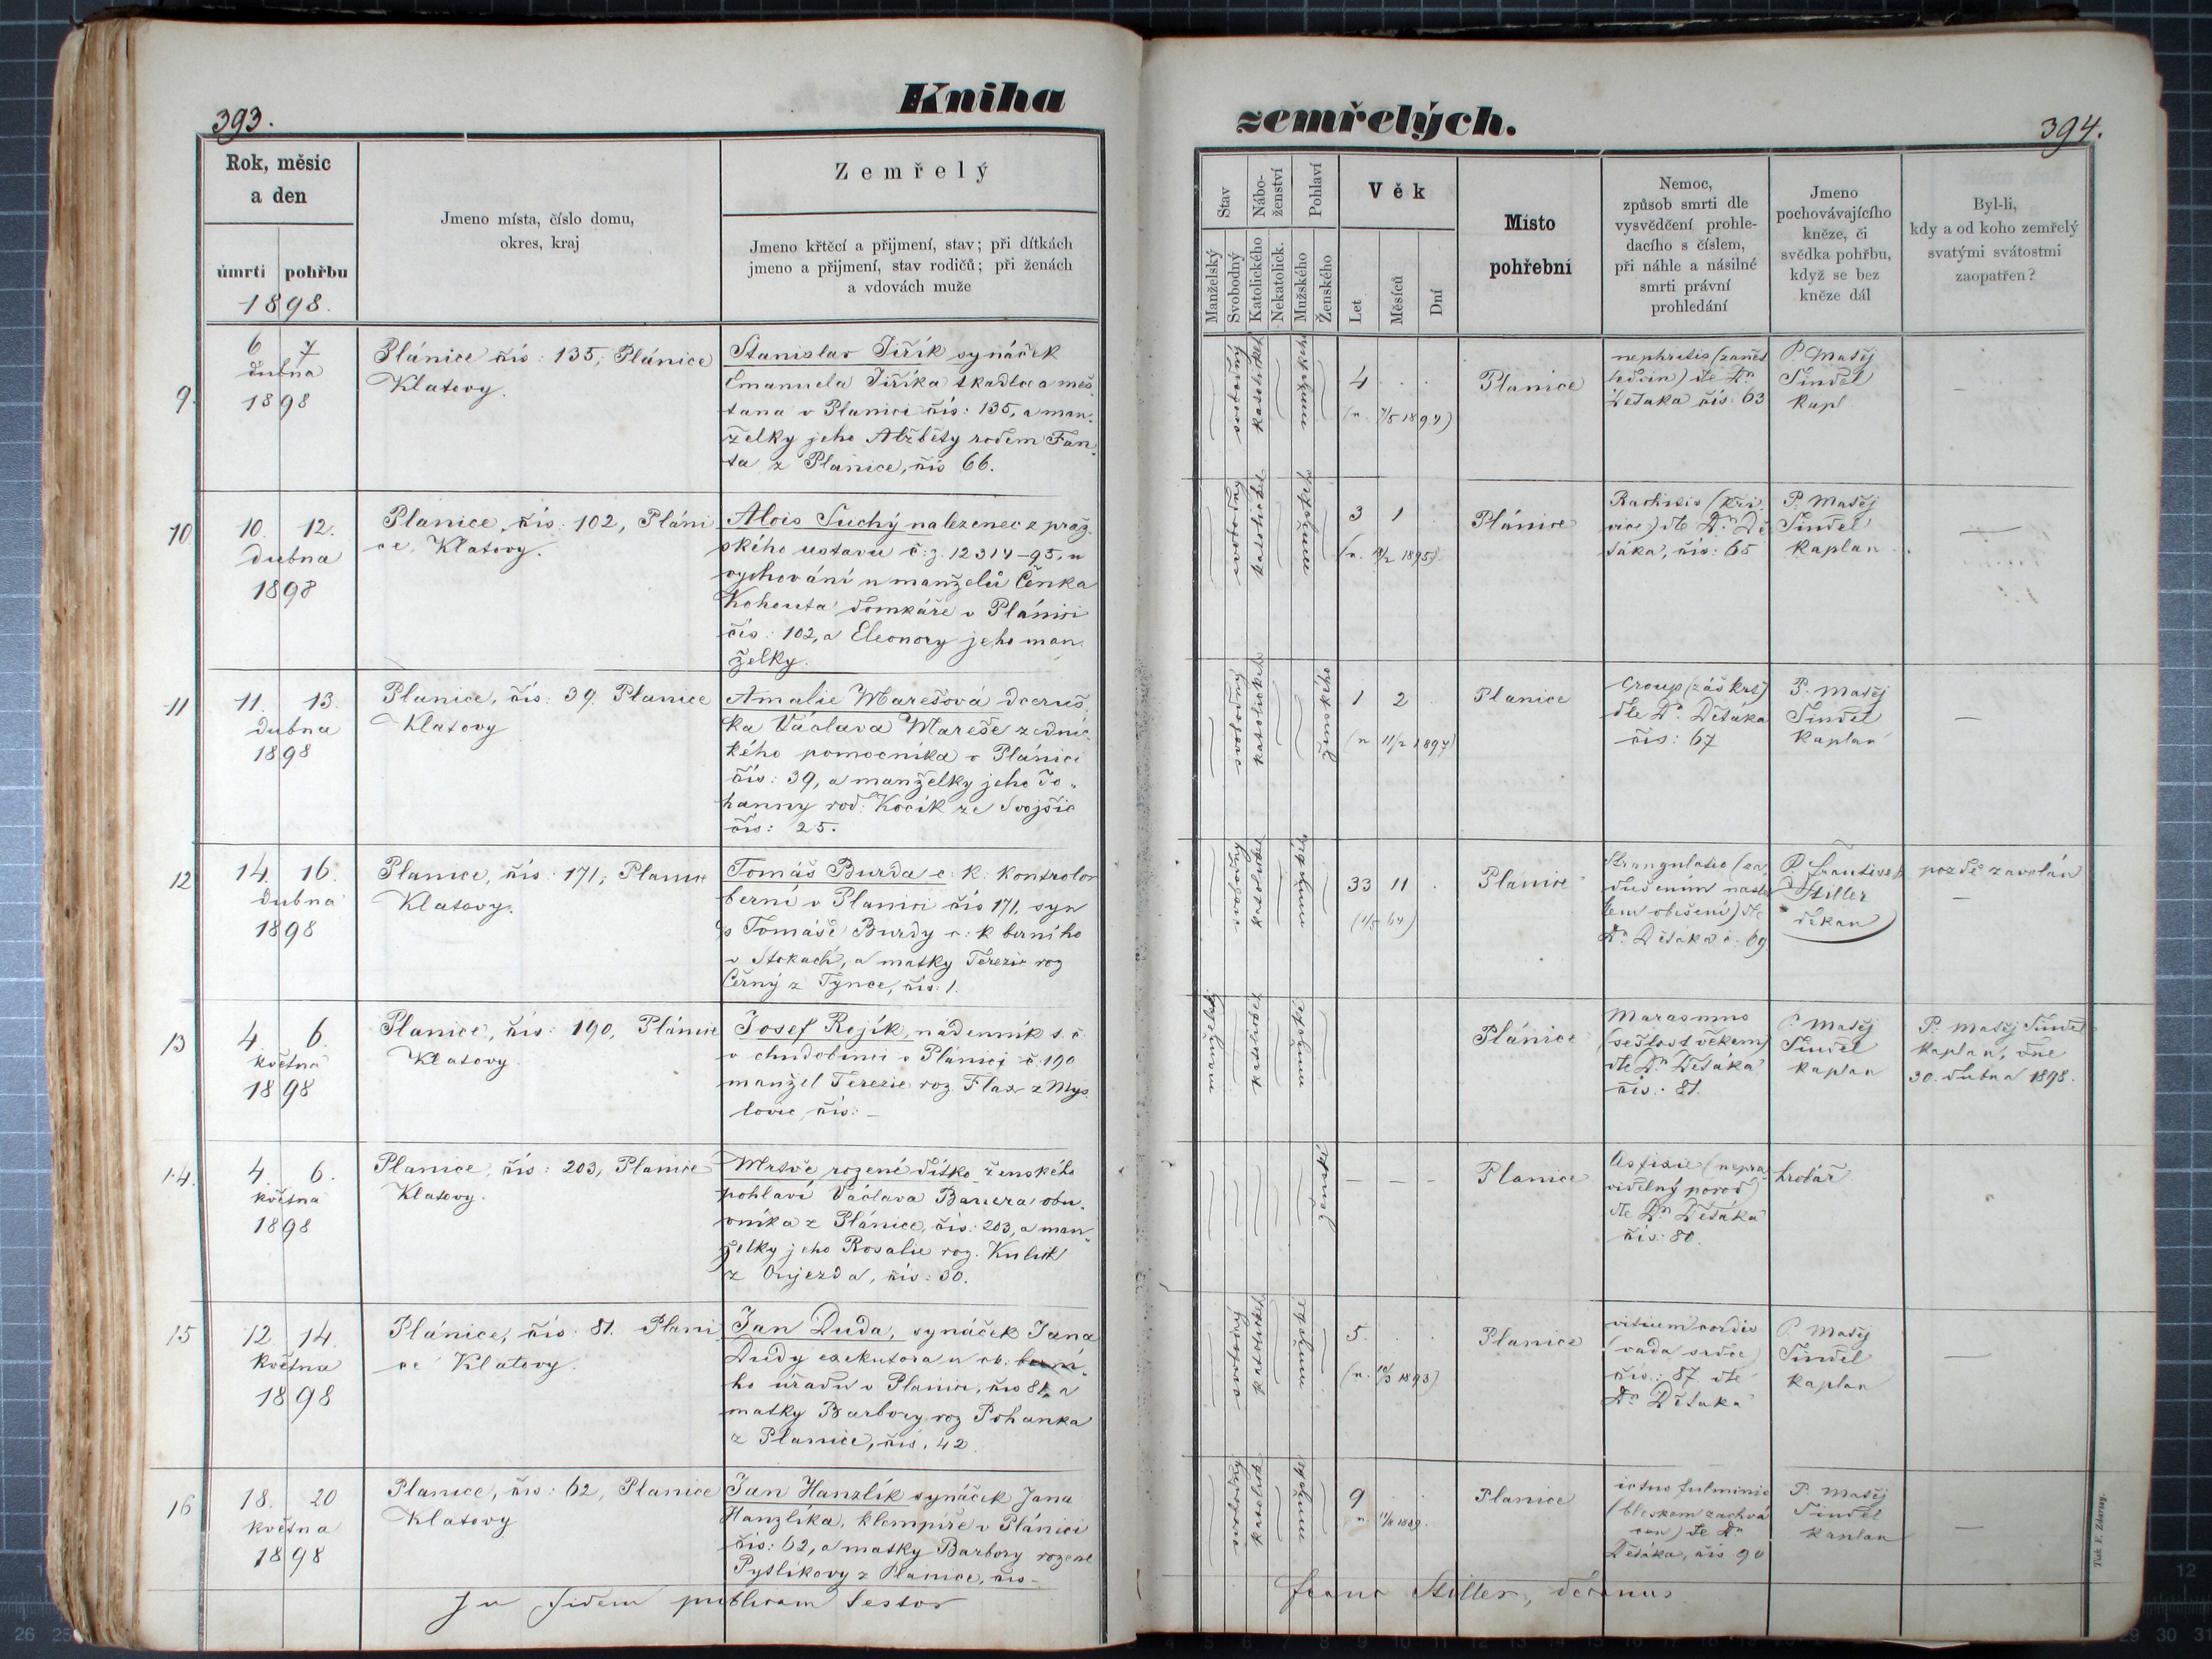 Kniha
393.
Rok, měsíc
a den
úmrtí pohřbu
1898.
Jmeno místa, číslo domu,
okres, kraj
Zemřelý
Jmeno křtěcí a přijmení, stav; při dítkách
jmeno a přijmení, stav rodičů; při ženách
a vdovách muže
9.
6 7
dubna
1898
Plánice čís: 135, Plánice
Klatovy.
Stanislav Jiřík synáček
Emanuela Jiříka tkadlce a měš
tana v Planici čís: 135, a man
želky jeho Alžběty rodem Fan
ta z Planice, čís 66.
10
10. 12.
dubna
1898
Planice, čís: 102, Pláni
ce, Klatovy.
Alois Suchý nalezenec z praž
ského ustavu č:z. 12314-95, u
vychování u manželů Čeňka
Kohouta domkáře v Plánici
čís: 102, a Eleonory jeho man
želky.
11
11. 13.
dubna
1898
Planice, čís: 39. Planice
Klatovy
Amalie Marešová dceruš
ka Václava Mareše zednic
kého pomocníka v Plánici
čís: 39, a manželky jeho Jo
hanny rod: Kocík ze Svojšic
čís: 25.
12
14. 16.
dubna
1898
Planice, čís: 171, Planice
Klatovy.
Tomáš Burda c: k: kontrolor
berní v Planici čís 171, syn
p Tomáše Burdy c: k berního
v Stokách, a matky Terezie roz
Černý z Tynce, čís: 1.
13
4. 6.
května
1898
Planice, čís: 190, Plánice
Klatovy
Josef Rejík, nádenník s. č.
v chudobinci v Plánici č: 190
manžel Terezie roz. Flax z Mys
lovic, čís: -
14.
4. 6.
května
1898
Planice, čís: 203, Planice
Klatovy.
Mrtvě rozené dítko ženského
pohlaví Václava Bauera obu
vníka z Plánice, čís: 203, a man
želky jeho Rosalie roz.
z Oujezda, čís: 30.
15
12 14.
května
1898
Plánice, čís: 81. Plani
ce Klatovy.
Jan Duda, synáček Jana
Dudy exekutora u berní
ho úřadu v Planici, čís 81, a
matky Barbory roz Pohanka
z Planice, čís. 42.
16
18. 20
května
1898
Planice, čís: 62, Planice
Klatovy
Jan Hanzlík synáček Jana
Hanzlíka, klempíře v Plánici
čís: 62, a matky Barbory rozené
Pytlíkovy z Planice, čís-
In fidem publicam testor
zemřelých.
394.
Stav
Nábo-
ženství
Pohlaví
Manželský
Svobodný
Katolického
Nekatolick.
Mužského
Ženského
Věk
Let
Měsíců
Dní
Místo
pohřební
Nemoc,
způsob smrti dle
vysvědčení prohle-
dacího s číslem,
při náhle a násilné
smrti právní
prohledání
Jmeno
pochovávajícího
kněze, či
svědka pohřbu,
když se bez
kněze dál
Byl-li,
kdy a od koho zemřelý
svatými svátostmi
zaopatřen?
svobodný
katolické
mužského
4 . .
(n. 7/5 1894)
Planice
nephritis (zanět
ledvin) dle Dr
Děťáka čís. 63
P. Matěj
Šindel
kapl
—
svobodný
katolické
mužského
3 1
(n. 18/2 1895)
Plánice
Rachitis (křivice) dle Dr. Dě
ťáka, čís: 65
P. Matěj
Šindel
kaplan
—
svobodný
katolické
ženského
1 2
(n 11/2 1897)
Planice
Croup (záškrt)
dle Dr. Děťáka
čís: 67
P. Matěj
Šindel
kaplan
—
svobodný
katolické
mužského
33 11 .
(1/5 64)
Planice
Strangulatio (za
dušením násled
kem oběšení) dle
Dr Děťáka č. 69
P. František
Stiller
děkan
pozdě zavolán
—
manželský
katolické
mužského
Plánice
Marasmus
(sešlost věkem)
dle Dr Děťáka
čís.: 81.
P. Matěj
Šindel
kaplan
P. Matěj Šindel
kaplan, dne
30. dubna 1898.
ženské
— — —
Planice
Asfixie (nepra
videlný porod)
dle Dr Děťáka
čís: 80.
hrobář
svobodný
katolické
mužského
5. . .
(n. 10/5 1893)
Planice
vitium cordis
(vada srdce)
čís.: 87 dle
Dr Děťáka
P. Matěj
Šindel
kaplan
—
svobodný
katolick
mužské
9 . .
n. 11/8 1889.
Planice
ictus fulminis
(bleskem zachvá
cen) dle Dr
Děťáka, čís 90
P. Matěj
Šindel
kaplan
—
Franc Stiller, décanus
Tisk F. Zdarny.